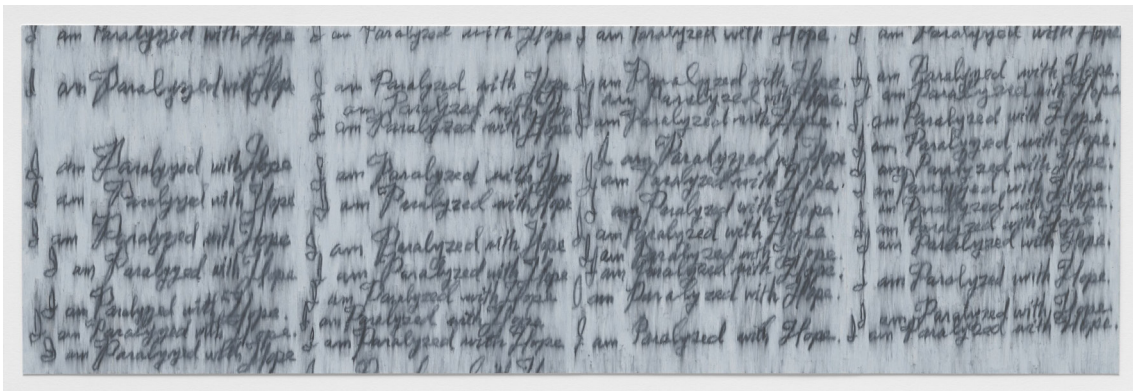 I am Paralyzed with Hope
I am Paralyzed with Hope
I am Paralyzed with Hope
I am Paralyzed with Hope
I am Paralyzed with Hope
I am Paralyzed with Hope
I am Paralyzed with Hope
I am Paralyzed with Hope.
I am Paralyzed with Hope
I am Paralyzed with Hope
I am Paralyzed with Hope
I am Paralyzed with Hope
I am Paralyzed with Hope
I am Paralyzed with Hope
I am Paralyzed with Hope
I am Paralyzed with Hope
I am Paralyzed with Hope
I am Paralyzed with Hope
I am Paralyzed with Hope.
I am Paralyzed with Hope
I am Paralyzed with Hope.
I am Paralyzed with Hope.
I am Paralyzed with Hope.
I am Paralyzed with Hope.
I am Paralyzed with Hope
I am Paralyzed with Hope.
I am Paralyzed with Hope.
I am Paralyzed with Hope.
I am Paralyzed with Hope.
I am Paralyzed with Hope.
I am Paralyzed with Hope.
I am Paralyzed with Hope.
I am Paralyzed with Hope
I am Paralyzed with Hope.
I am Paralyzed with Hope.
I am Paralyzed with Hope.
I am Paralyzed with Hope.
I am Paralyzed with Hope.
I am Paralyzed with Hope.
I am Paralyzed with Hope.
I am Paralyzed with Hope.
I am Paralyzed with Hope.
I am Paralyzed with Hope.
I am Paralyzed with Hope.
I am Paralyzed with Hope.